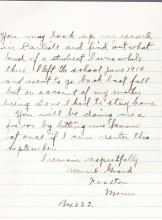 You may look up my record
in Carlisle and find out what
kind of a student I was while
there I left the school June 1914
and meant to go back last fall
but on account of my mother
being sone I had to stay home.
You will be doing me a
favor by letting me know
at once if I can reenter this
September.
I remain respectfully
Fosston
Minn
Box 202.